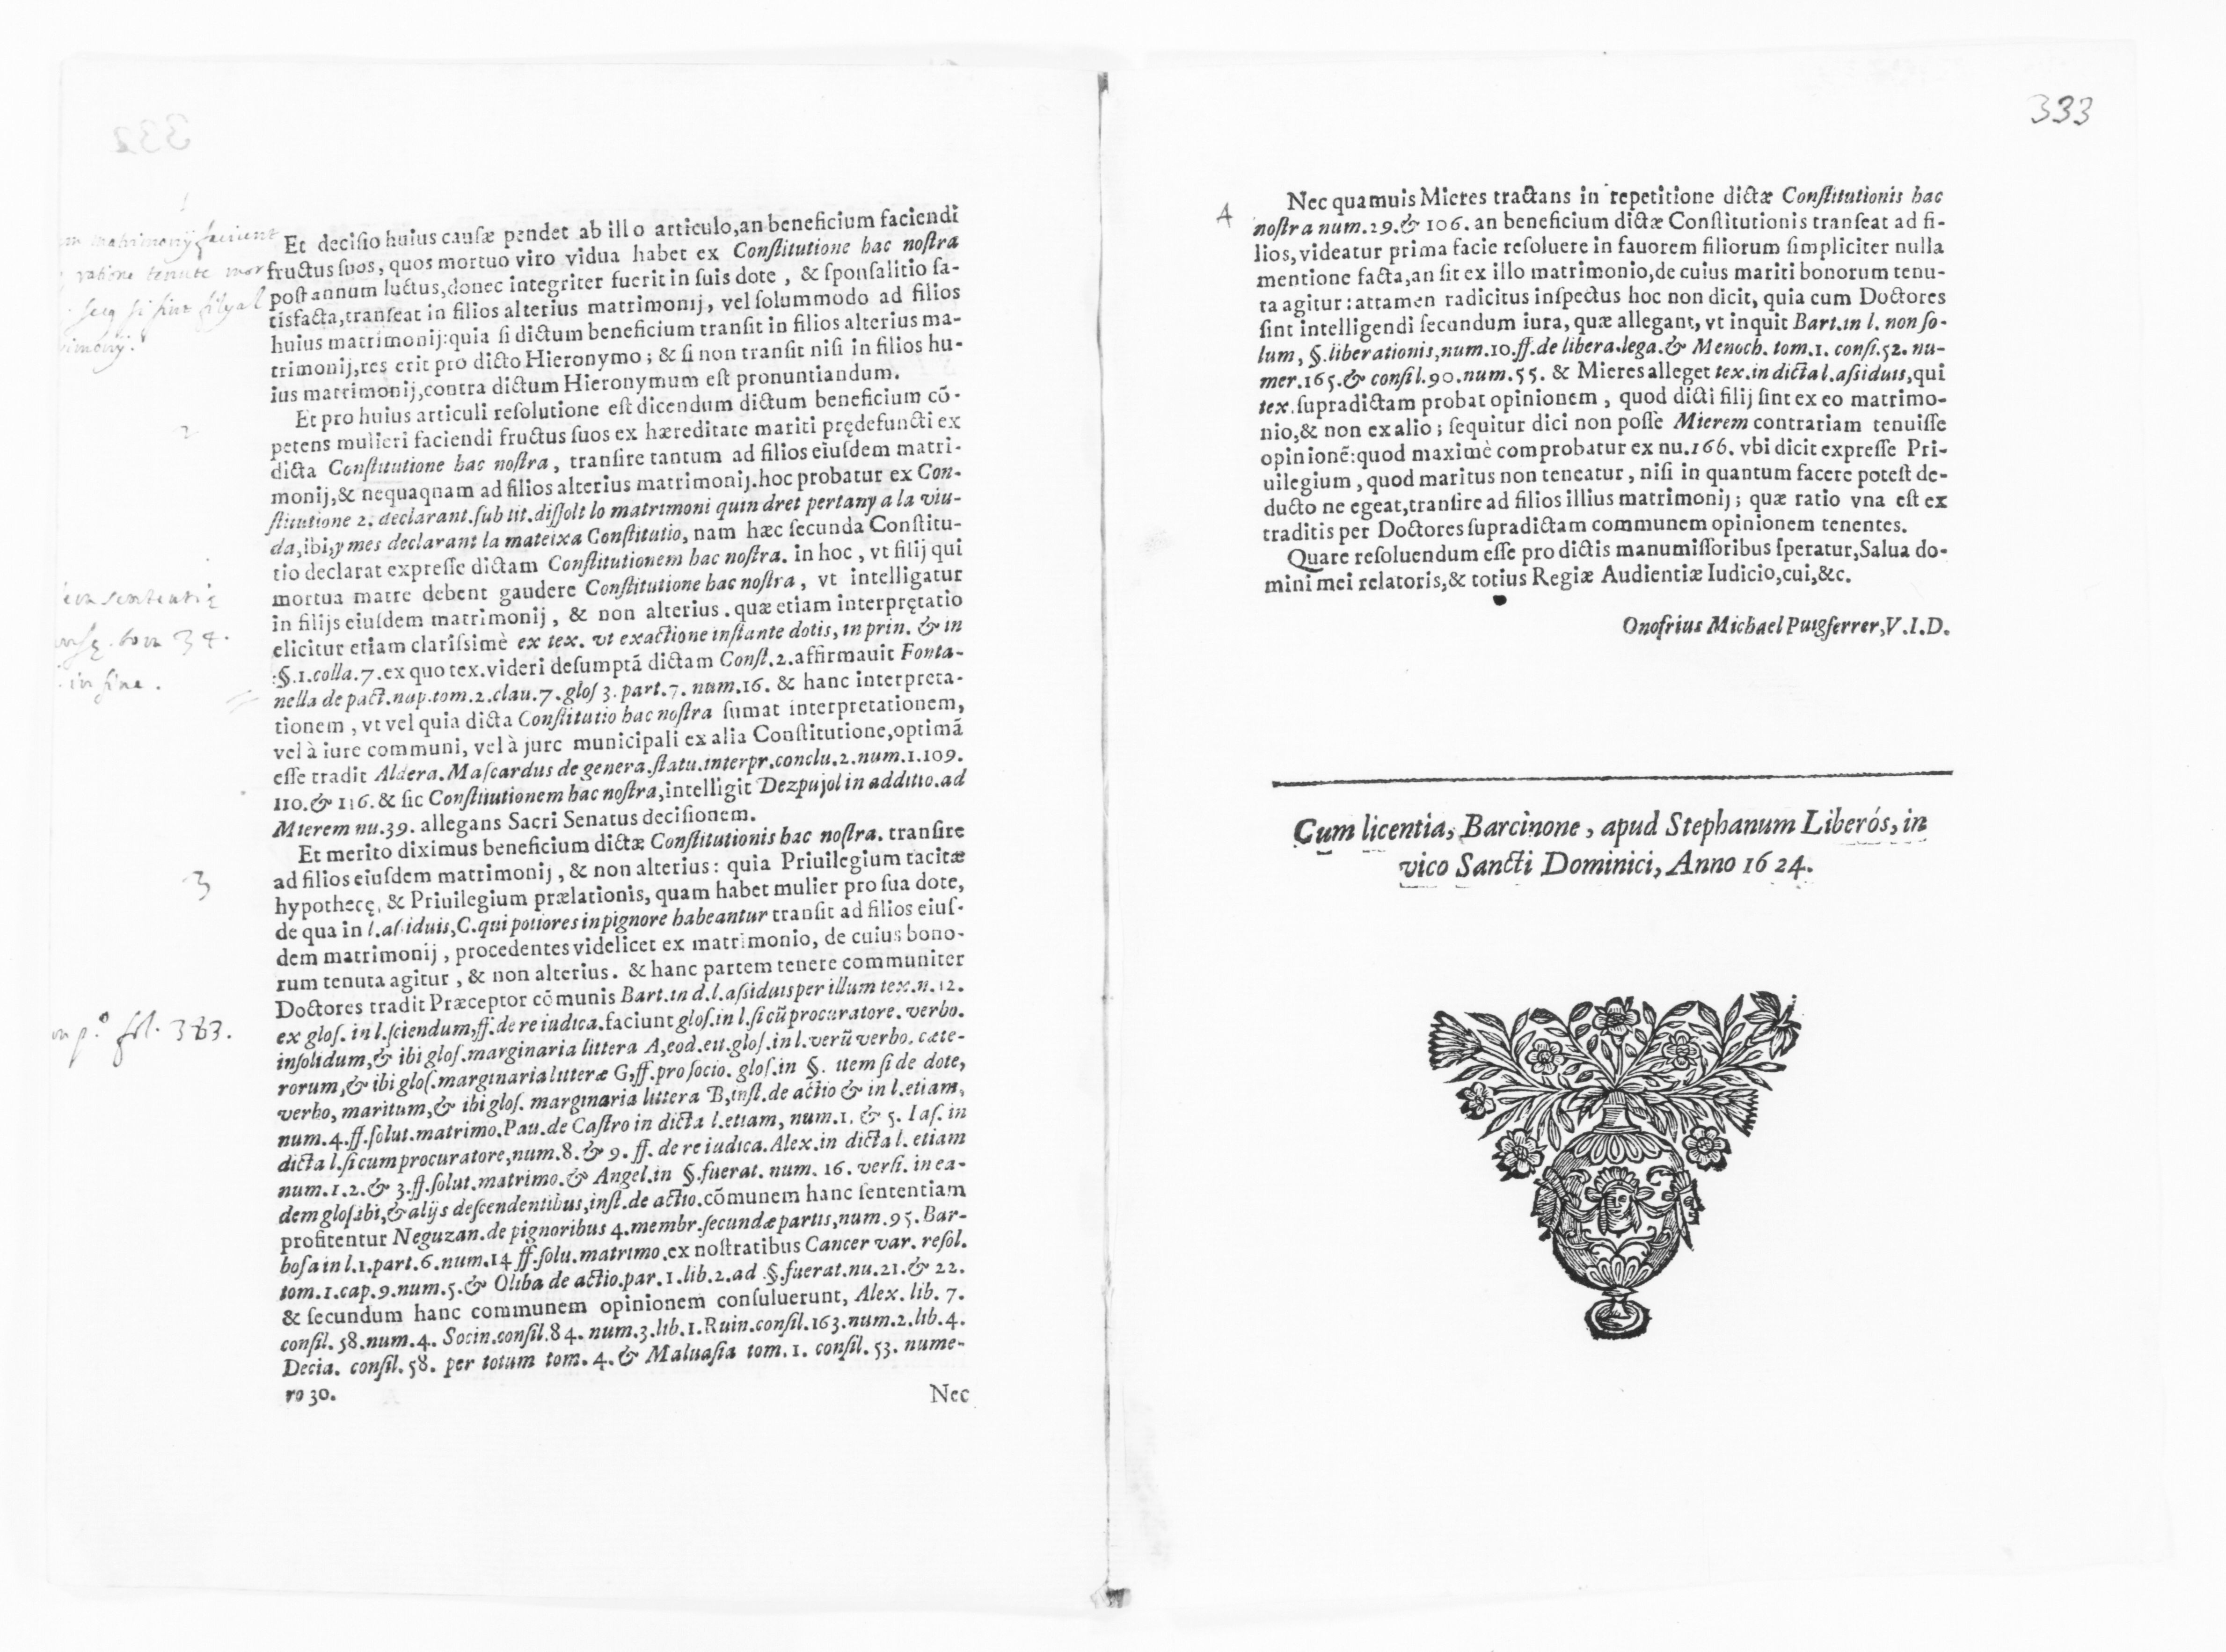 332
Et decisio huius causæ pendet ab illo articulo,an beneficium faciendi
fructus suos, quos mortuo viro vidua habet ex Constitutione hac nostra
post annum luctus,donec integriter fuerit in suis dote , & sponsalitio sa-
tisfacta,transeat in filios alterius matrimonij, vel solummodo ad filios
huius matrimonij:quia si dictum beneficium transit in filios alterius ma-
trimonij,res erit pro dicto Hieronymo ; & si non transit nisi in filios hu-
ius matrimonij,contra dictum Hieronymum est pronuntiandum.
2
Et pro huius articuli resolutione est dicendum dictum beneficium cō-
petens mulieri faciendi fructus suos ex hæreditate mariti prędefuncti ex
dicta Constitutione hac nostra , transire tantum ad filios eiusdem matri-
monij,& nequaqnam ad filios alterius matrimonij.hoc probatur ex Con-
stitutione 2. declarant.sub tit.dissolt lo matrimoni quin dret pertany a la viu-
da,ibi,y mes declarant la mateixa Constitutio, nam hæc secunda Constitu-
tio declarat expresse dictam Constitutionem hac nostra. in hoc , vt filij qui
mortua matre debent gaudere Constitutione hac nostra , vt intelligatur
in filijs eiusdem matrimonij , & non alterius . quæ etiam interprętatio
elicitur etiam clarissimè ex tex. vt exactione instante dotis, in prin. & in
§.1.colla.7.ex quo tex.videri desumptā dictam Const.2.affirmauit Fonta-
nella de pact.nup.tom.2.clau.7.glos 3. part.7. num.16. & hanc interpreta-
tionem , vt vel quia dicta Constitutio hac nostra sumat interpretationem,
vel à iure communi, vel à jure municipali ex alia Constitutione,optimā
esse tradit Aldera.Mascardus de genera.statu.interpr.conclu.2.num.1.109.
110.& 116.& sic Constitutionem hac nostra,intelligit Dezpujol in additio.ad
Mierem nu.39. allegans Sacri Senatus decisionem.
3
Et merito diximus beneficium dictæ Constitutionis hac nostra. transire
ad filios eiusdem matrimonij , & non alterius : quia Priuilegium tacitæ
hypothecę, & Priuilegium prælationis, quam habet mulier pro sua dote,
de qua in l.assiduis,C.qui potiores in pignore habeantur transit ad filios eius-
dem matrimonij , procedentes videlicet ex matrimonio, de cuius bono-
rum tenuta agitur , & non alterius . & hanc partem tenere communiter
Doctores tradit Præceptor cōmunis Bart.in d.l.assiduis per illum tex.n.12.
ex glos. in l.sciendum,ff.de re iudica.faciunt glos.in l.si cū procuratore. verbo.
insolidum,& ibi glos.marginaria littera A,eod.tit.glos.in l.verū verbo. cæte-
rorum,& ibi glos.marginaria litteræ G,ff.pro socio. glos.in §. item si de dote,
verbo, maritum,& ibi glos. marginaria littera B,inst.de actio & in l.etiam,
num.4.ff.solut.matrimo.Pau.de Castro in dicta l.etiam, num.1. & 5. Ias. in
dicta l.si cum procuratore,num.8.& 9. ff. de re iudica.Alex.in dicta l. etiam
num.1.2.& 3.ff.solut.matrimo.& Angel.in §.fuerat. num. 16. versi. in ea-
dem glos.ibi,& alijs descendentibus,inst.de actio.cōmunem hanc sententiam
profitentur Neguzan.de pignoribus 4.membr.secundæ partis,num.95.Bar-
bosa in l.1.part.6.num.14 ff.solu.matrimo.ex nostratibus Cancer var. resol.
tom.1.cap.9.num.5.& Oliba de actio.par.1.lib.2.ad §.fuerat.nu.21.& 22.
& secundum hanc communem opinionem consuluerunt, Alex. lib. 7.
consil. 58.num.4. Socin.consil.84. num.3.lib.1.Ruin.consil.163.num.2.lib.4.
Decia. consil. 58. per totum tom. 4.& Maluasia tom. 1. consil. 53. nume-
ro 30.
Nec
in fine .
fol. 383.
333
4
Nec quamuis Mieres tractans in repetitione dictæ Constitutionis hac
nostra num.29.& 106. an beneficium dictæ Constitutionis transeat ad fi-
lios,videatur prima facie resoluere in fauorem filiorum simpliciter nulla
mentione facta,an sit ex illo matrimonio,de cuius mariti bonorum tenu-
ta agitur : attamen radicitus inspectus hoc non dicit, quia cum Doctores
sint intelligendi secundum iura, quæ allegant, vt inquit Bart.in l. non so-
lum, §.liberationis,num.10.ff.de libera.lega.& Menoch. tom.1. consi.52. nu-
mer.165.& consil.90.num.55. & Mieres alleget tex.in dicta l.assiduis,qui
tex.supradictam probat opinionem , quod dicti filij sint ex eo matrimo-
nio,& non ex alio ; sequitur dici non posse Mierem contrariam tenuisse
opinionē:quod maximè comprobatur ex nu.166. vbi dicit expresse Pri-
uilegium , quod maritus non teneatur , nisi in quantum facere potest de-
ducto ne egeat,transire ad filios illius matrimonij ; quæ ratio vna est ex
traditis per Doctores supradictam communem opinionem tenentes.
Quare resoluendum esse pro dictis manumissoribus speratur,Salua do-
mini mei relatoris,& totius Regiæ Audientiæ Iudicio,cui,&c.
Onofrius Michael Puigferrer,V.I.D.
Cum licentia, Barcinone , apud Stephanum Liberós, in
vico Sancti Dominici, Anno 1624.